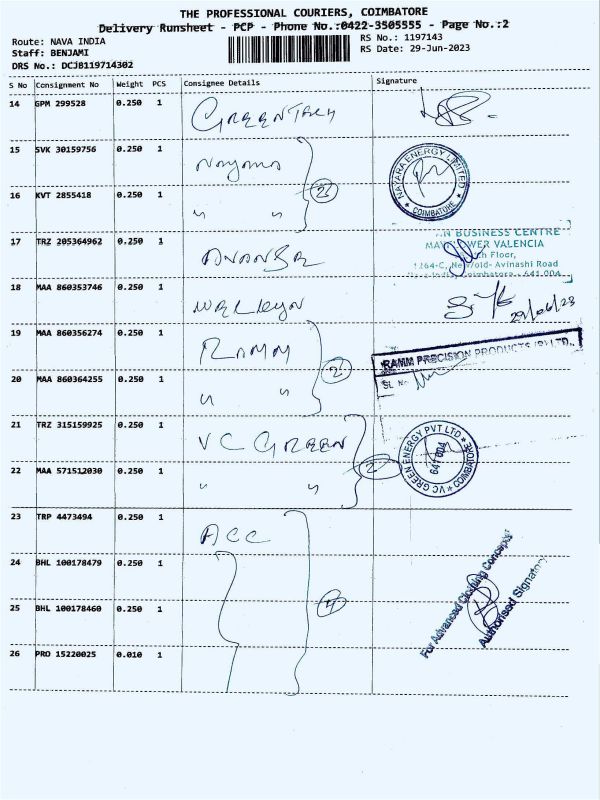 THE PROFESSIONAL COURIERS, COIMBATORE
Delivery Runsheet - PCP - Phone No.:0422-3505555 - Page No.:2
Route: NAVA INDIA
Staff: BENJAMI
DRS No.: DCJB119714302
RS No.: 1197143
RS Date: 29-Jun-2023
S No Consignment No Weight PCS Consignee Details Signature
14 GPM 299528 0.250 1 GREENTECH
15 SVK 30159756 0.250 1 Nayara
2
NAYARA ENERGY LIMITED
* COIMBATORE *
16 KVT 2855418 0.250 1 " "
17 TRZ 205364962 0.250 1
BUSINESS CENTRE
VALENCIA
Floor,
1264-C, New/old- Avinashi Road
Coimbatore - 641 004
18 MAA 860353746 0.250 1
29/06/23
19 MAA 860356274 0.250 1 RAMM
2
RAMM PRECISION PRODUCTS (P) LTD.,
SL No
20 MAA 860364255 0.250 1 " "
21 TRZ 315159925 0.250 1 VC GREEN
2
VC GREEN ENERGY PVT LTD
* COIMBATORE *
641 004
22 MAA 571512030 0.250 1 " "
23 TRP 4473494 0.250 1 ACC
24 BHL 100178479 0.250 1
4
25 BHL 100178460 0.250 1
26 PRO 15220025 0.010 1
For Advanced Clothing Concepts
Authorised Signatory